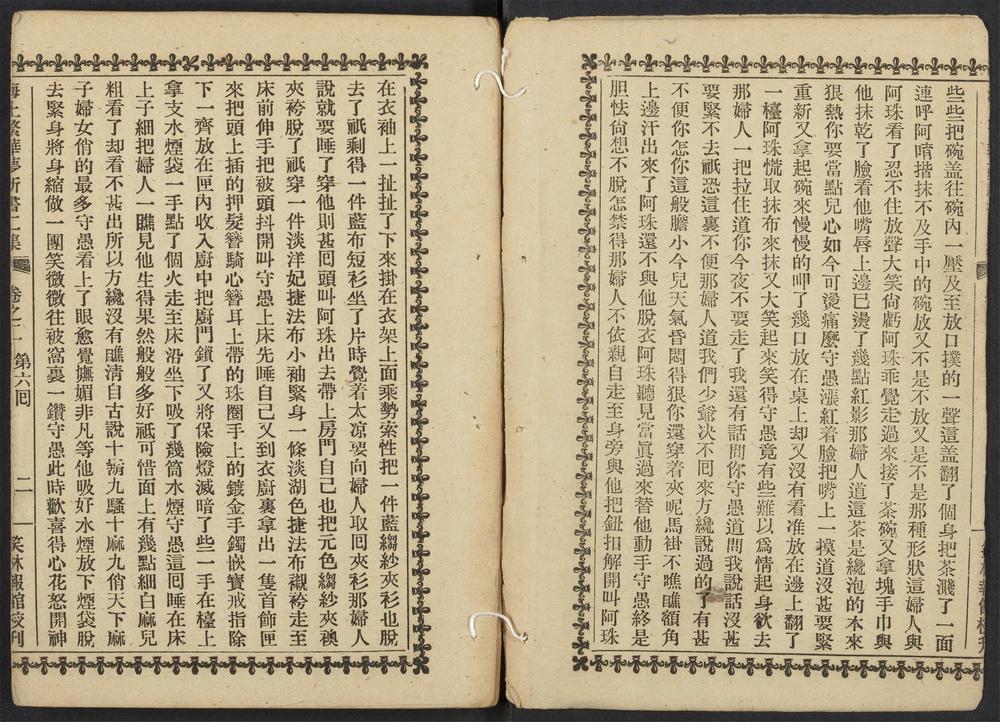 些些把碗盖往碗內一壓及至放口撲的一聲這盖翻了個身把茶濺了一面
連呼阿唷揩抹不及手中的碗放又不是不放又是不是那種形狀這婦人與
阿珠看了忍不住放聲大笑尙虧阿珠乖覺走過來接了茶碗又拿塊手巾與
他抹乾了臉看他嘴唇上邊已燙了幾點紅影那婦人道這茶是纔泡的本來
狠熱你要當點兒心如今可燙痛麼守愚漲紅着臉把嘴上一摸道沒甚要緊
重新又拿起碗來慢慢的呷了幾口放在桌上却又沒有看准放在邊上翻了
一檯阿珠慌取抹布來抹又大笑起來笑得守愚竟有些難以爲情起身欲去
那婦人一把拉住道你今夜不要走了我還有話問你守愚道問我說話沒甚
要緊不去祇恐這裏不便那婦人道我們少爺决不回來方纔說過的了有甚
不便你怎你這般膽小今兒天氣昏悶得狠你還穿着夾呢馬褂不瞧瞧額角
上邊汗出來了阿珠還不與他脫衣阿珠聽見當眞過來替他動手守愚終是
胆怯尙想不脫怎禁得那婦人不依親自走至身旁與他把鈕扣解開叫阿珠
在衣袖上一扯扯了下來掛在衣架上面乘勢索性把一件藍縐紗夾衫也脫
去了祇剩得一件藍布短衫坐了片時覺着太凉要向婦人取囘夾衫那婦人
說就要睡了穿他則甚囘頭叫阿珠出去帶上房門自己也把元色縐紗夾襖
夾袴脫了祇穿一件淡洋妃捷法布小袖緊身一條淡湖色捷法布襯袴走至
床前伸手把被頭抖開叫守愚上床先睡自己又到衣廚裏拿出一隻首飾匣
來把頭上插的押髮簪騎心簪耳上帶的珠圈手上的鍍金手鐲嵌寶戒指除
下一齊放在匣內收入廚中把廚門鎖了又將保險燈滅暗了些一手在檯上
拿支水煙袋一手點了個火走至床沿坐下吸了幾筒水煙守愚這囘睡在床
上子細把婦人一瞧見他生得果然般般多好祇可惜面上有幾點細白麻兒
粗看了却看不甚出所以方纔沒有瞧淸自古說十癩九騷十麻九俏天下麻
子婦女俏的最多守愚看上了眼愈覺嫵媚非凡等他吸好水煙放下煙袋脫
去緊身將身縮做一團笑微微往被窩裏一鑽守愚此時歡喜得心花怒開神
海上繁華夢新書二集 卷之二 第六囘 二 笑林報館校刋